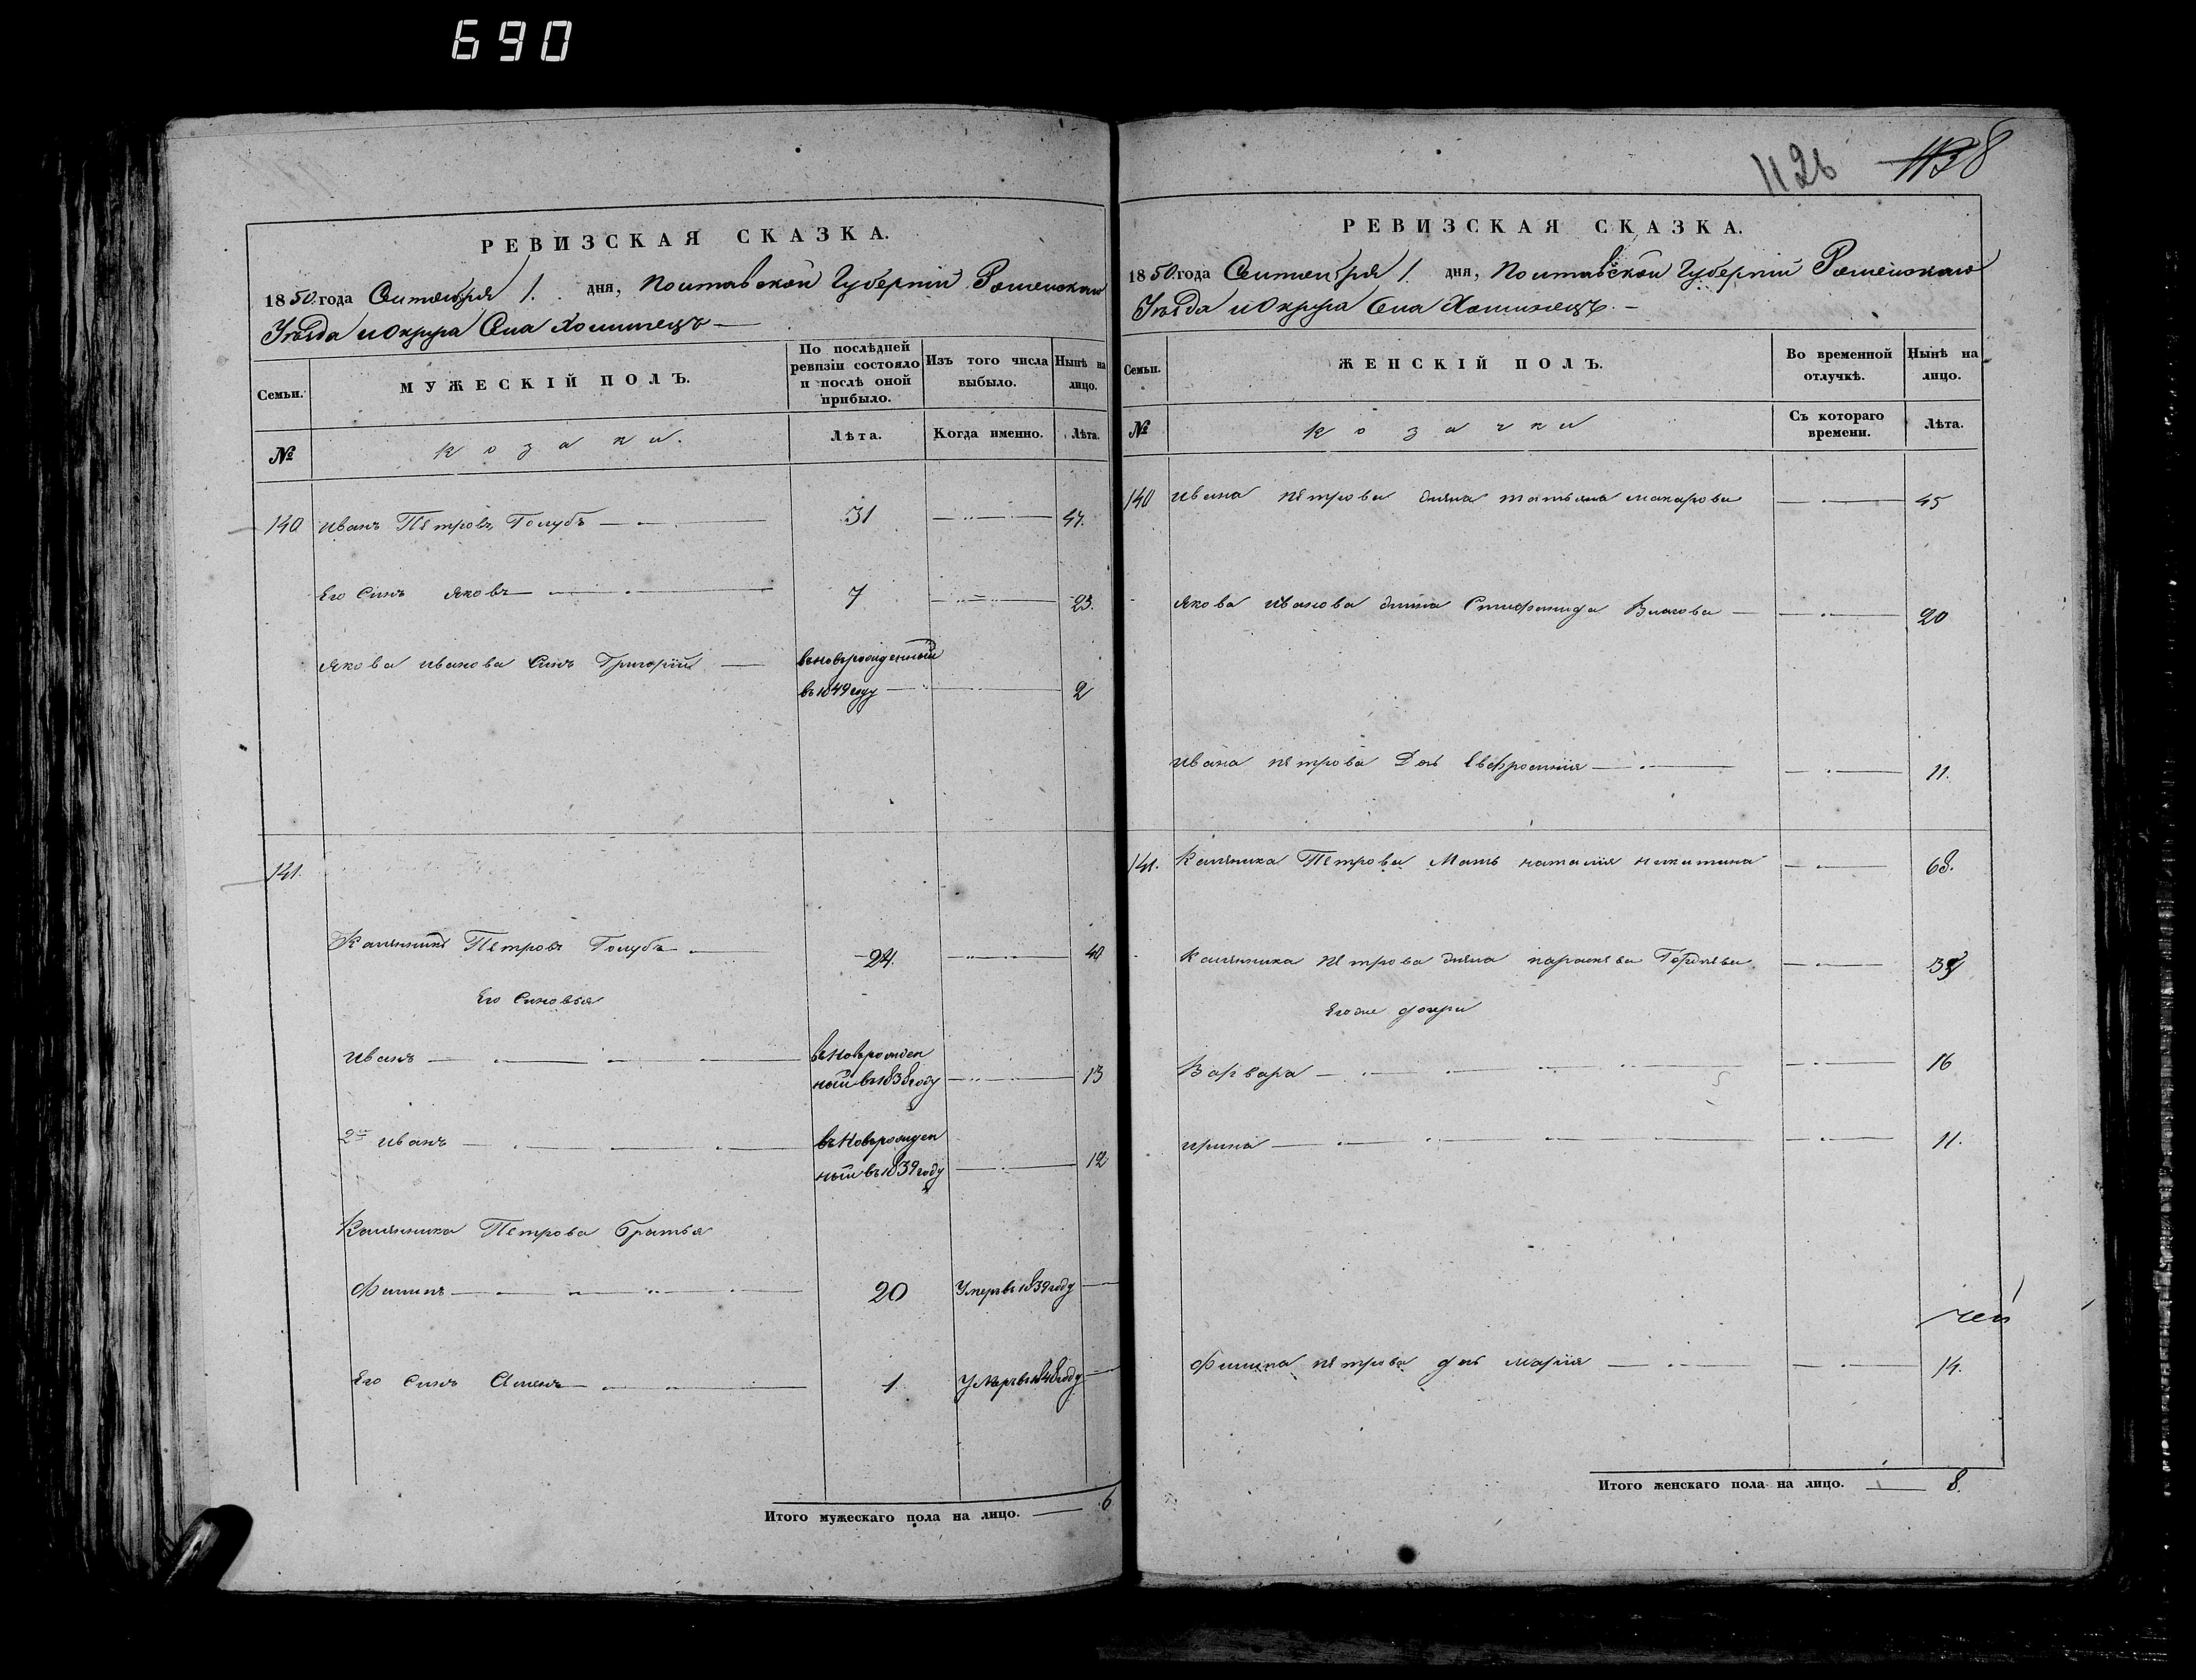 690
РЕВИЗСКАЯ СКАЗКА.
1850 года Сентября 1. дня, Полтавской Губерніи Роменскаго
Уѣзда и Округа Села
Семьи.
МУЖЕСКІЙ ПОЛЪ.
По послѣдней ревизіи состояло и послѣ оной прибыло.
Изъ того числа выбыло.
Нынѣ на лицо.
№
козаки.
Лѣта.
Когда именно.
Лѣта.
140 Иванъ Петровъ Голубъ 31 47.
Его Синъ Яковъ 7 23.
Якова Иванова Синъ Григорій вновьрожденный
въ 1849 году 2
141.
Калѣнникъ Петровъ Голубъ 24. 40
Его Синовья
Иванъ вновьрожден
ный въ 1838 году 13
2й Иванъ вновьрожден
ный въ 1839 году 12
Калѣнника Петрова братья
Филипъ 20 Умеръ въ 1839 году
Его Синъ Семенъ 1 Умеръ въ 1848 году
Итого мужескаго пола на лицо. 6
1126 1138
РЕВИЗСКАЯ СКАЗКА.
1850 года Сентября 1. дня, Полтавской Губерніи Роменскаго
Уѣзда и Округа Села
Семьи.
ЖЕНСКІЙ ПОЛЪ.
Во временной отлучкѣ.
Нынѣ на лицо.
№
козачки
Съ котораго времени.
Лѣта.
140 Ивана Петрова жена Татьяна Макарова 45
Якова Иванова жина Стифанида Власова 20
Ивана Петрова Дочь Евфросинія 11.
141. Калѣнника Петрова Мать Наталія Никитина 68.
Калѣнника Петрова жена Параскева Гордѣева
Егоже дочери
Варвара 16
Ирина 11.
Филипа Петрова дочь Марія 14.
Итого женскаго пола на лицо. 8.